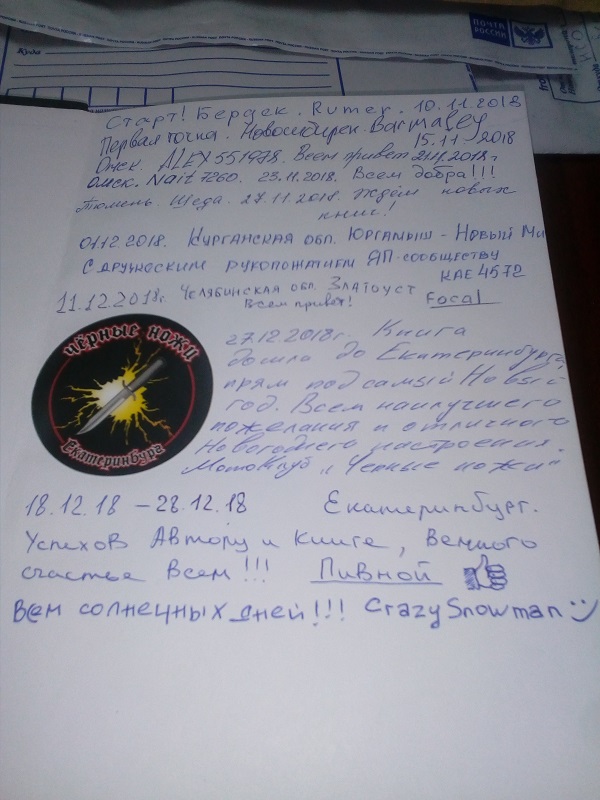 ПОЧТА РОССИИ
Куда
from
Старт! Бердск. Rumer. 10.11.2018
Первая точка. Новосибирск. Barmaley
15.11.2018
Омск. ALEX551978. Всем привет 21.11.2018г
Омск. Nait 7260. 23.11.2018. Всем добра!!!
Тюмень. Шеда. 27.11.2018. Ждём новых
книг!
01.12.2018. Курганская обл. Юргамыш - Новый Ми
С дружеским рукопожатием ЯП-сообществу
КАЕ4572
11.12.2018г. Челябинская обл. Златоуст
Всем привет! Focal
чёрные ножи
Екатеринбург
27.12.2018г. Книга
дошла до Екатеринбурга,
прям под самый Новый
год. Всем наилучшего
пожелания и отличного
Новогоднего настроения.
МотоКлуб „Черные ножи"
18.12.18 – 28.12.18 Екатеринбург.
Успехов Автору и Книге, Вечного
счастья Всем!!! Пивной
Всем солнечных дней!!! CrazySnowman :)